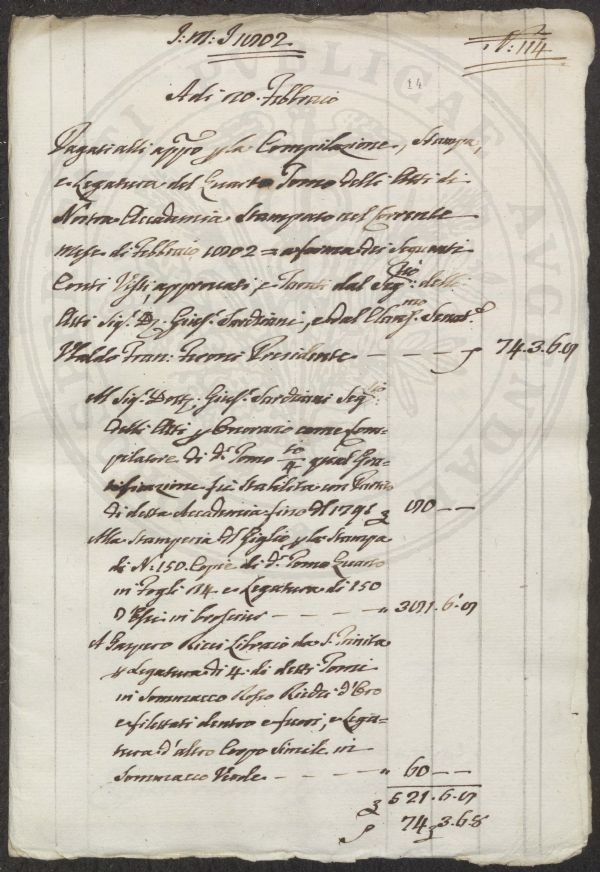 J: M: J 1802
N: 114
14
A di 20. Febbraio
Pagati alli appo p la Compilazione, Stampa,
e Legatura del Quarto Tomo delli Atti di
Nostra Accademia Stampato nel Corrente
mese di Febbraio 1802 = a forma dei Seguenti
Conti Visti, approvati, e dal Segrio: delli
Atti Sigr. D. Gius. Sarchiani, e dal Clarismo Senatre.
Ubaldo Fran: Feroni Presidente - - - 74.3.6.8
Al Sigr. Dottr. Gius. Sarchiani Segrio:
delli Atti p Onorario come Com-
pilatore di do. Tomo 4to qual Gra-
tificazione fu Stabilita con Partito
di detta Accademia fino del 1795 - -
Alla Stamperia del Giglio p la Stampa
di N: 150. Copie di do. Tomo Quarto
in Fogli e Legatura di 150
d'Essi in brosciur - - - - " 6.8
A Gaspero Ricci Libraio da S. Trinita
p Legatura di 4. di detti Tomi
in Sommacco Rosso d'Oro
e filettati dentro e fuori, e Lega-
tura d'altro Corpo Simile in
Sommacco Verde - - - - " 60 - -
521.6.8
74.3.6.8